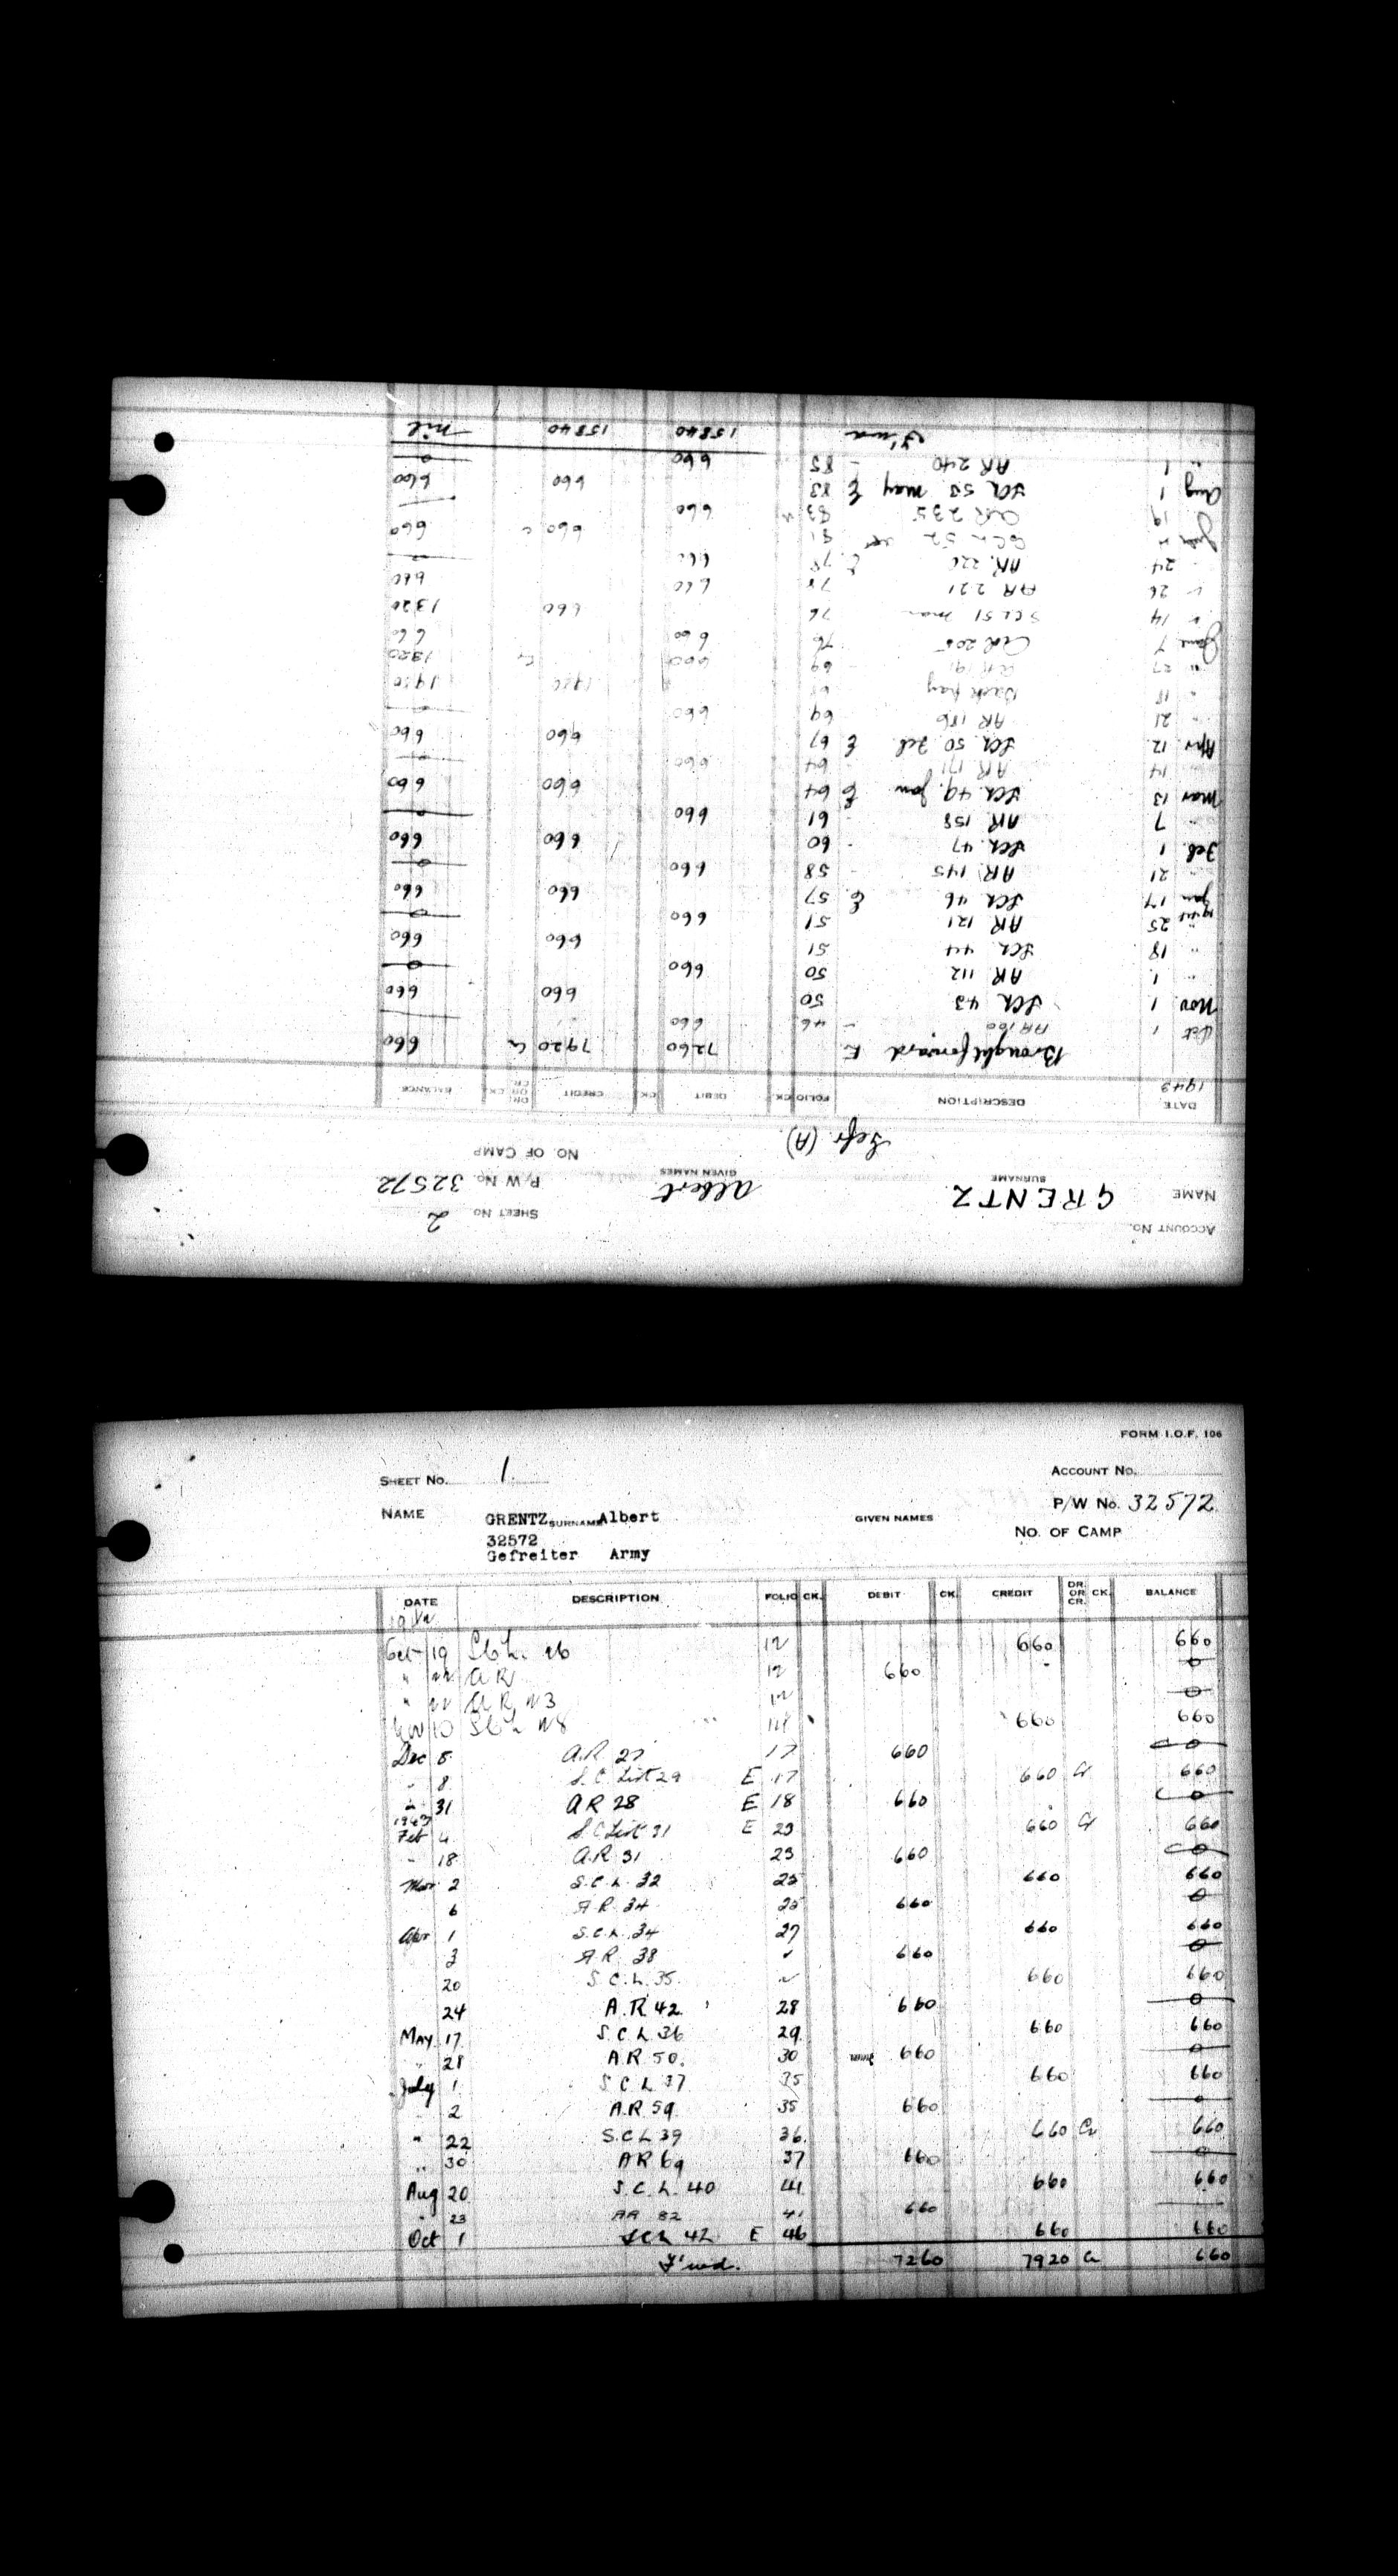 ACCOUNT No. SHEET No 2
NAME GRENTZ Albert P/W No. 32572
SURNAME GIVEN NAMES
Gefr. (A) NO. OF CAMP
DATE DESCRIPTION FOLIO CK. DEBIT CK. CREDIT DR. OR CR. CK. BALANCE
1943
Brought forward E 7260 7920 Cr 660
Oct 1 AR 100 - 46 660
Nov 1 SCL 43 50 660 660
" 1 AR 112 50 660 0
" 18 SCL 44 51 660 660
" 25 AR 121 51 660 0
1944 Jan 17 SCL 46 E 57 660 660
" 21 AR 145 - 58 660 0
Feb. 1 SCL 47 - 60 660 660
" 7 AR 158 - 61 660 0
Mar 13 SCL 49 Jan E 64 660 660
" 14 AR 171 64 660
Apr 12 SCL 50 Feb. E 67 660 660
" 21 AR 186 69 660
" 18 Back pay 68 1980 1980
" 27 AR 191 69 660 1320
June 7 AR 205 76 660 660
" 14 SCL 51 mar 76 660 1320
" 26 AR 221 78 660 660
24 AR 226 E 78 660 0
July SCL 52 81 660 660
19 AR 235 83 660
Aug 1 SCL 53 May E 83 660 660
" 1 AR 240 - 85 660 0
F'wd 15840 15840 nil
FORM I.O.F. 106
SHEET No. 1. ACCOUNT No.
NAME GRENTZ SURNAME Albert GIVEN NAMES P/W No. 32572
32572 NO. OF CAMP
Gefreiter Army
DATE DESCRIPTION FOLIO CK. DEBIT CK. CREDIT DR. OR CR. CK. BALANCE
Oct 19 S.C.L. 26 12 660 660
" 22 A R 12 660 0
" 22 A R 23 12 0
Nov 10 S.C.L. 28 14 660 660
Dec 5 A.R 27 17 660 0
" 8 S.C. List 29 E 17 660 Cr 660
" 31 A R 28 E 18 660 0
1943
Feb 4 S.C List 31 E 23 660 Cr 660
" 18 A.R 31 23 660 0
Mar 2 S.C.L. 32 25 660 660
6 A.R. 34 25 660 0
Apr 1 S.C.L. 34 27 660 660
3 A.R. 38 " 660 0
20 S.C.L. 35 " 660 660
24 A.R 42 28 660 0
May 17 S.C.L 36 29 660 660
" 28 A.R 50. 30 660 0
July 1 S.C.L 37 35 660 660
2 A.R 59 35 660 0
" 22 S.C.L 39 36. 660 Cr 660
" 30 AR 69 37 660 0
Aug 20 S.C.L. 40 41 660 660
" 23 AR 82 41 660
Oct 1 SCL 42 E 46 660 660
F'wd. 7260 7920 Cr 660